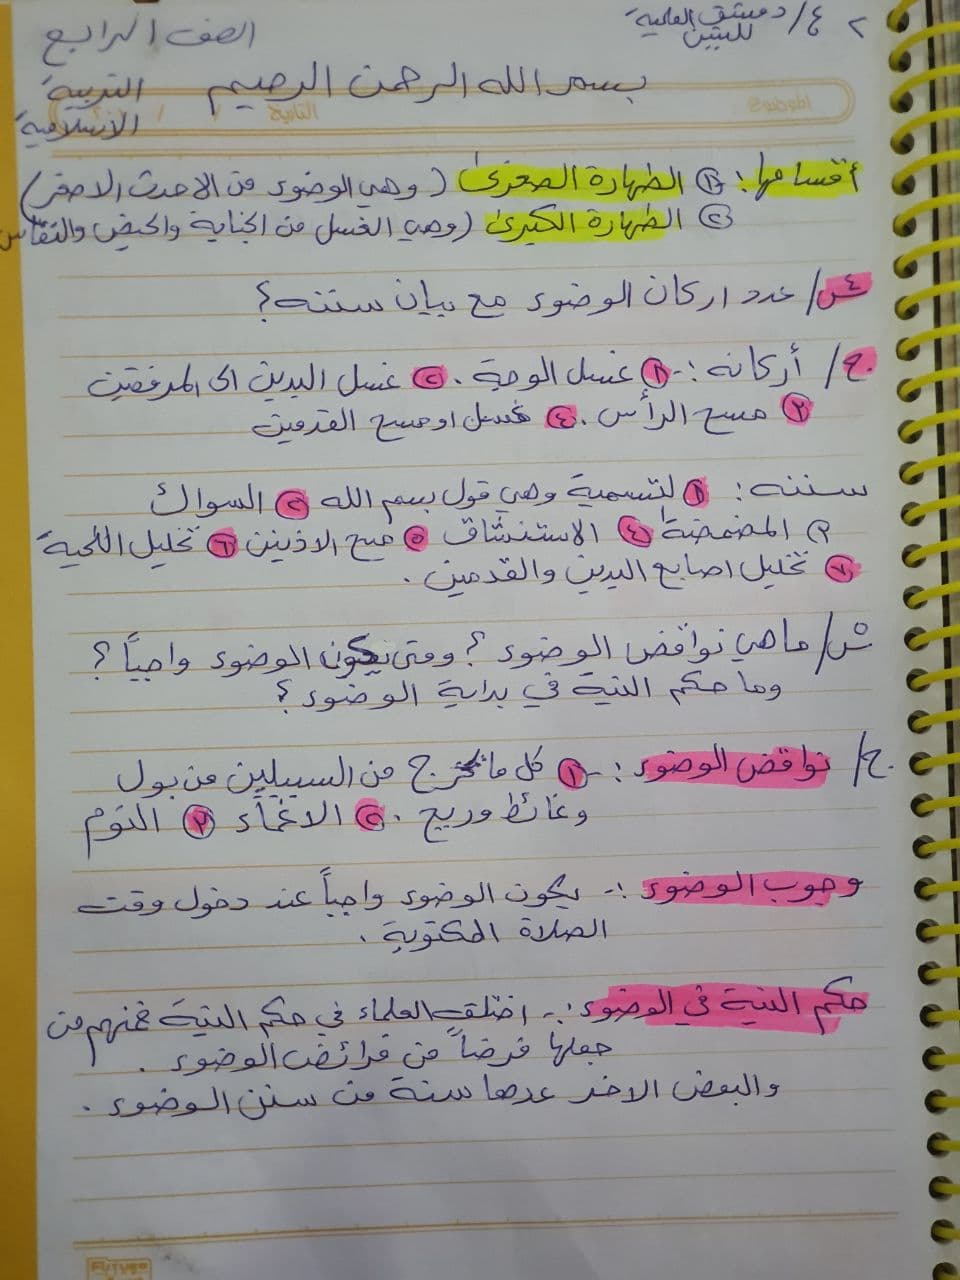 ٢ ع/ دمشق العلمية
للبنين
الصف الرابع
بسم الله الرحمن الرحيم
التربية
الإسلامية
الموضوع
التاريخ / /
أقسامها: ① الطهارة الصغرى (وهي الوضوء من الاحدث الاصغر)
② الطهارة الكبرى (وهي الغسل من الجنابة والحيض والنفاس
س٤/ عدد اركان الوضوء مع بيان سننه؟
ج/ أركانه:- ① غسل الوجة. ② غسل اليدين الى المرفقين
③ مسح الرأس. ④ غسل او مسح القدمين
سننه: ① لتسمية وهي قول بسم الله ② السواك
٣ المضمضة ④ الاستنشاق ⑤ مسح الاذنين ⑥ تخليل اللحية
⑦ تخليل اصابع اليدين والقدمين.
س/ ما هي نواقض الوضوء؟ ومتى يكون الوضوء واجباً؟
وما حكم النية في بداية الوضوء؟
ج/ نواقض الوضوء:- ① كل ما يخرج من السبيلين من بول
وغائط وريح. ② الاغماء ③ النوم
وجوب الوضوء:- يكون الوضوء واجباً عند دخول وقت
الصلاة المكتوبة.
حكم النية في الوضوء:- اختلف العلماء في حكم النية فمنهم من
جعلها فرضاً من فرائض الوضوء.
والبعض الاخر عدها سنة من سنن الوضوء.
FUTURE